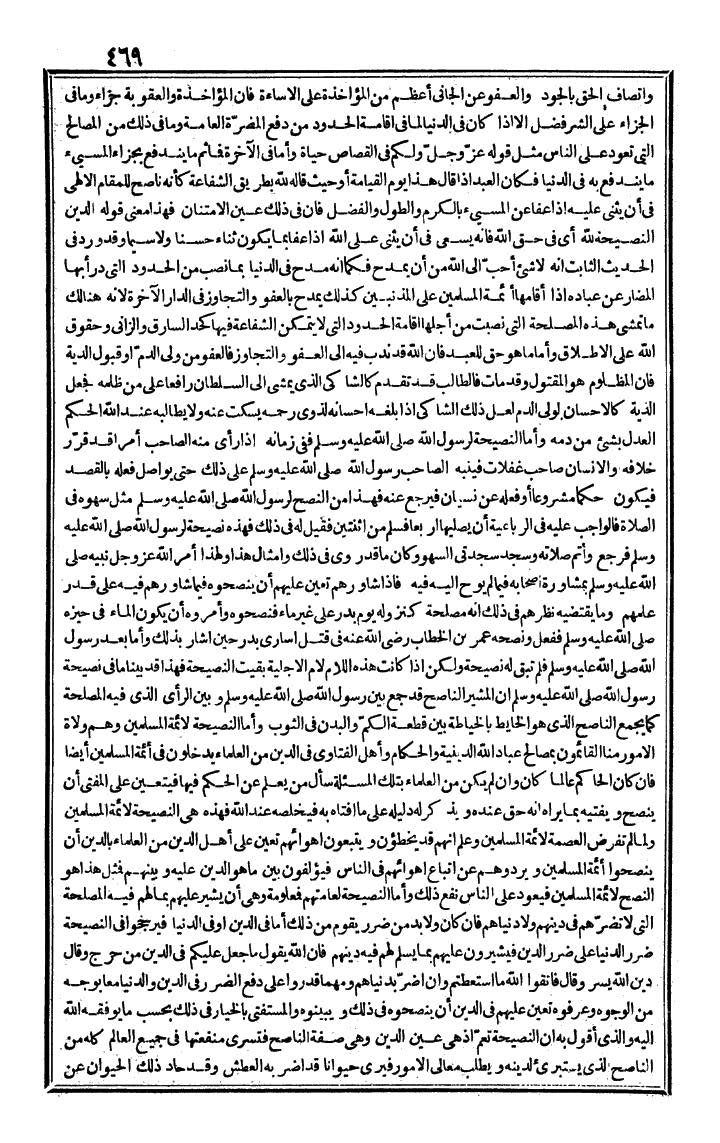 ٤٦٩
واتصاف الحق بالجود والعفو عن الجانى أعظم من المؤاخذة على الاساءة فان المؤاخذة والعقوبة جزاء وما فى
الجزاء على الشر فضل الا اذا كان فى الدنيا لما فى اقامة الحدود من دفع المضرة العامة وما فى ذلك من المصالح
التى تعود على الناس مثل قوله عز وجل ولكم فى القصاص حياة وأما فى الآخرة فائم ما يندفع بجزاء المسىء
ما يندفع به فى الدنيا فكان العبد اذا قال هذا يوم القيامة أو حيث قاله لله بطريق الشفاعة كأنه ناصح للمقام الالهى
فى أن يثنى عليه اذا عفا عن المسىء بالكرم والطول والفضل فان فى ذلك عين الامتنان فهذا معنى قوله الدين
النصيحة لله أى فى حق الله فانه يسعى فى أن يثنى على الله اذا عفا بما يكون ثناء حسنا ولاسيما وقد ورد فى
الحديث الثابت انه لا شئ أحب الى الله من أن يمدح فكما انه مدح فى الدنيا بما نصب من الحدود التى درأ بها
المضار عن عباده اذا أقامها أئمة المسلمين على المذنبين كذلك يمدح بالعفو والتجاوز فى الدار الآخرة لانه هنالك
ما تمشى هذه المصلحة التى نصبت من أجلها اقامة الحدود التى لا يتمكن الشفاعة فيها كحد السارق والزانى وحقوق
الله على الاطلاق وأما ما هو حق للعبد فان الله قد ندب فيه الى العفو والتجاوز فالعفو من ولى الدم أو قبول الدية
فان المظلوم هو المقتول وقد مات فالطالب قد تقدم كالشاكى الذى يمشى الى السلطان رافعا على من ظلمه فجعل
الدية كالاحسان لولى الدم لعل ذلك الشاكى اذا بلغه احسانه لذوى رحمه يسكت عنه ولا يطالبه عند الله الحكم
العدل بشئ من دمه وأما النصيحة لرسول الله صلى الله عليه وسلم ففى زمانه اذا رأى منه الصاحب أمرا قد قرر
خلافه والانسان صاحب غفلات فينبه الصاحب رسول الله صلى الله عليه وسلم على ذلك حتى يواصل فعله بالقصد
فيكون حكما مشروعا أو فعله عن نسيان فيرجع عنه فهذا من النصح لرسول الله صلى الله عليه وسلم مثل سهوه فى
الصلاة فالواجب عليه فى الرباعية أن يصليها أربعا فسلم من اثنتين فقيل له فى ذلك فهذه نصيحة لرسول الله صلى الله عليه
وسلم فرجع وأتم صلاته وسجد سجدتى السهو وكان ما قد روى فى ذلك وامثال هذا ولهذا أمر الله عز وجل نبيه صلى
الله عليه وسلم بمشاورة أصحابه فيما لم يوح اليه فيه فاذا شاورهم تعين عليهم أن ينصحوه فيما شاورهم فيه على قدر
علمهم وما يقتضيه نظرهم فى ذلك انه مصلحة كنزوله يوم بدر على غير ماء فنصحوه وأمروه أن يكون الماء فى حيزه
صلى الله عليه وسلم ففعل ونصحه عمر بن الخطاب رضى الله عنه فى قتل اسارى بدر حين اشار بذلك وأما بعد رسول
الله صلى الله عليه وسلم فلم تبق له نصيحة ولكن اذا كانت هذه اللام لام الاجلية بقيت النصيحة فهذا قد بينا ما فى نصيحة
رسول الله صلى الله عليه وسلم ان المشير الناصح قد جمع بين رسول الله صلى الله عليه وسلم و بين الرأى الذى فيه المصلحة
كما يجمع الناصح الذى هو الخايط بالخياطة بين قطعة الكم والبدن فى الثوب وأما النصيحة لائمة المسلمين وهم ولاة
الامور منا القائمون بمصالح عباد الله الدينية والحكام وأهل الفتاوى فى الدين من العلماء يدخلون فى أئمة المسلمين أيضا
فان كان الحاكم عالما كان وان لم يكن من العلماء بتلك المسئلة سأل من يعلم عن الحكم فيها فيتعين على المفتى أن
ينصح و يفتيه بما يراه انه حق عنده و يذكر له دليله على ما افتاه به فيخلصه عند الله فهذه هى النصيحة لائمة المسلمين
ولما لم تفرض العصمة لائمة المسلمين وعلم انهم قد يخطؤن و يتبعون اهوائهم تعين على أهل الدين من العلماء بالدين أن
ينصحوا أئمة المسلمين و يردوهم عن اتباع اهوائهم فى الناس فيؤلفون بين ما هو الدين عليه و بينهم فمثل هذا هو
النصح لائمة المسلمين فيعود على الناس نفع ذلك وأما النصيحة لعامتهم فعلومة وهى أن يشير عليهم بما لهم فيه المصلحة
التى لا تضرهم فى دينهم ولا دنياهم فان كان ولا بد من ضرر يقوم من ذلك أما فى الدين أو فى الدنيا فيرجحوا فى النصيحة
ضرر الدنيا على ضرر الدين فيشيرون عليهم بما يسلم لهم فيه دينهم فان الله يقول ما جعل عليكم فى الدين من حرج وقال
دين الله يسر وقال فاتقوا الله ما استطعتم وان اضر بدنياهم ومهما قدروا على دفع الضرر فى الدين والدنيا معا بوجه
من الوجوه وعرفوه تعين عليهم فى الدين أن ينصحوه فى ذلك و يبينوه والمستفتى بالخيار فى ذلك بحسب ما يوفقه الله
اليه والذى أقول به ان النصيحة تعم اذ هى عين الدين وهى صفة الناصح فتسرى منفعتها فى جميع العالم كله من
الناصح الذى يستبرئ لدينه و يطلب معالى الامور فيرى حيوانا قد اضر به العطش وقد حاد ذلك الحيوان عن